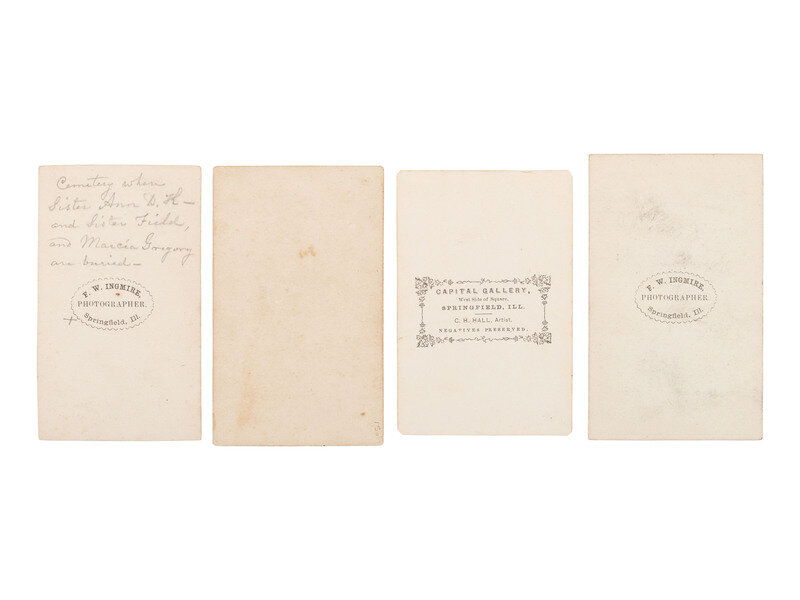 Cemetery where
Sister Ann D. H—
and Sister Field,
and Marcia Gregory
are buried—
F. W. INGMIRE,
PHOTOGRAPHER.
Springfield, Ill.
CAPITAL GALLERY,
West Side of Square,
SPRINGFIELD, ILL.
C. H. HALL, Artist.
NEGATIVES PRESERVED.
F. W. INGMIRE,
PHOTOGRAPHER
Springfield, Ill.